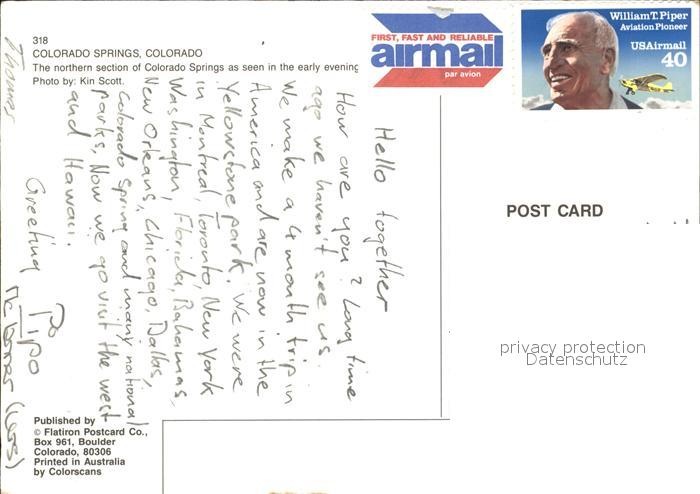 318
COLORADO SPRINGS, COLORADO
The northern section of Colorado Springs as seen in the early evening
Photo by: Kin Scott.
FIRST, FAST AND RELIABLE
airmail
par avion
William T. Piper
Aviation Pioneer
USAirmail
40
POST CARD
privacy protection
Datenschutz
Hello together
How are you? Long time
ago we haven't see us.
We make a 4 month trip in
America and are now in the
Yellowstone park. We were
in Montreal, Toronto, New York
Washington, Florida, Bahamas,
New Orleans, Chicago, Dallas,
Colorado Spring and many national
parks. Now we go visit the west
and Hawaii.
Greeting
Pipo
Thomas
Published by
© Flatiron Postcard Co.,
Box 961, Boulder
Colorado, 80306
Printed in Australia
by Colorscans